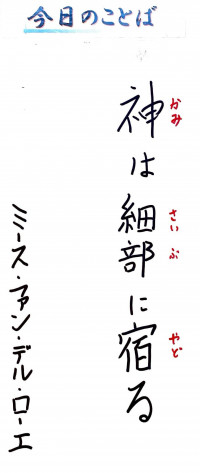 今日のことば
神は細部に宿る
かみ
さいぶ
やど
ミース・ファン・デル・ローエ